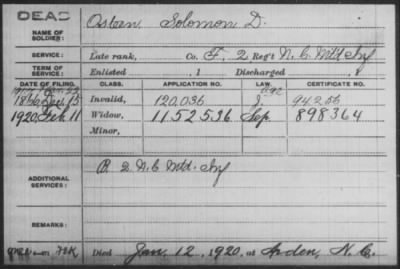 DEAD
NAME OF SOLDIER: Osteen, Solomon D.
SERVICE: Late rank, Co. F, 2 Reg't N.C. Mtd Inf
TERM OF SERVICE: Enlisted , 1 Discharged , 1
DATE OF FILING. CLASS. APPLICATION NO. LAW. CERTIFICATE NO.
1866, Dec 15 Invalid, 120,036 94256
1920 Feb 11 Widow, 1152536 Sep 898364
Minor,
ADDITIONAL SERVICES: P. 2 N.C Mtd. Inf
REMARKS:
Died Jan. 12, 1920, at Arden, N.C.